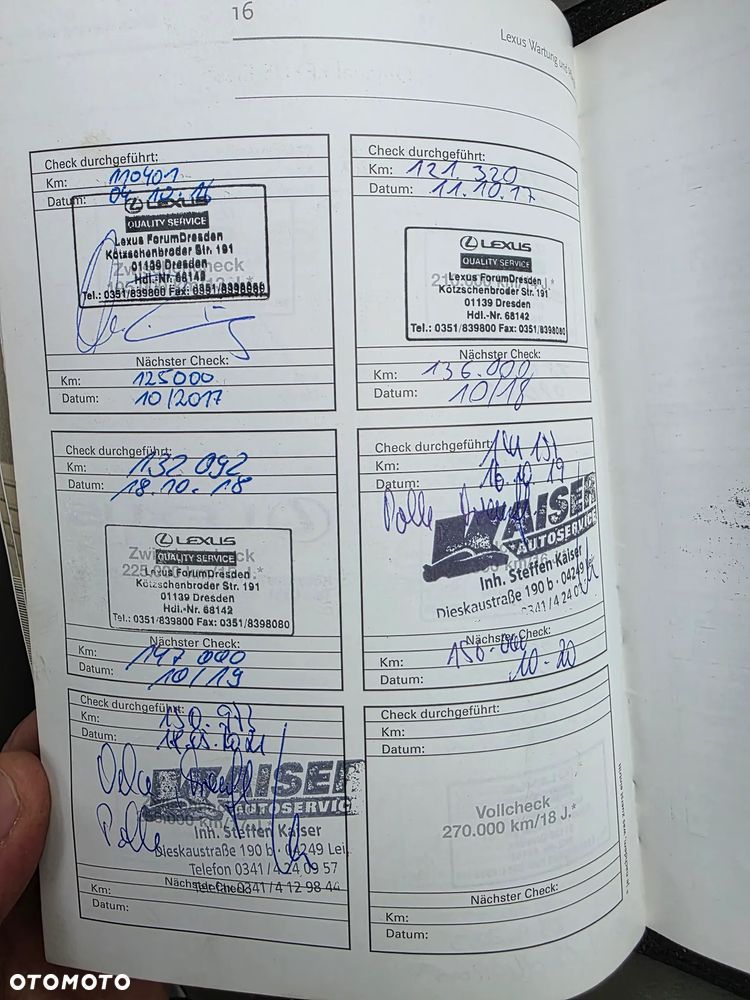 16
Lexus Wartung und
Check durchgeführt:
Km: 110401
Datum: 04.10.16
LEXUS
QUALITY SERVICE
Lexus ForumDresden
Kötzschenbroder Str. 191
01139 Dresden
Hdl.-Nr. 68142
Tel.: 0351/839800 Fax: 0351/8398080
Nächster Check:
Km: 125000
Datum: 10/2017
Check durchgeführt:
Km: 121.320
Datum: 11.10.17
LEXUS
QUALITY SERVICE
Lexus ForumDresden
Kötzschenbroder Str. 191
01139 Dresden
Hdl.-Nr. 68142
Tel.: 0351/839800 Fax: 0351/8398080
Nächster Check:
Km: 136.000
Datum: 10/18
Check durchgeführt:
Km: 132 092
Datum: 18.10.18
LEXUS
QUALITY SERVICE
Lexus ForumDresden
Kötzschenbroder Str. 191
01139 Dresden
Hdl.-Nr. 68142
Tel.: 0351/839800 Fax: 0351/8398080
Nächster Check:
Km: 147000
Datum: 10/19
Check durchgeführt:
Km:
Datum: 16.10.19
KAISER
AUTOSERVICE
Inh. Steffen Kaiser
Dieskaustraße 190 b · 04249
0341 / 4 24 0
Nächster Check:
Km: 156.000
Datum: 10-20
Check durchgeführt:
Km:
Datum:
KAISER
AUTOSERVIC
Inh. Steffen Kaiser
Dieskaustraße 190 b · 04249 Lei
Telefon 0341 / 4 24 09 57
Telefax 0341 / 4 12 98 44
Nächster Check:
Km:
Datum:
Check durchgeführt:
Km:
Datum:
Vollcheck
270.000 km/18 J.*
Nächster Check:
Km:
Datum:
* je nachdem, was zuerst eintritt
OTOMOTO